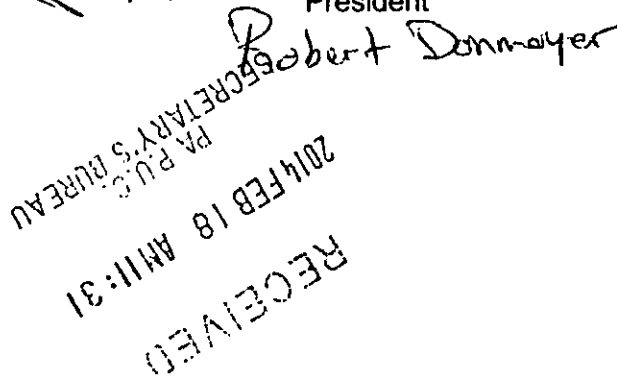 President
Robert Donmoyer
RECEIVED
2014 FEB 18 AM 11:31
PA P.U.C.
SECRETARY'S BUREAU